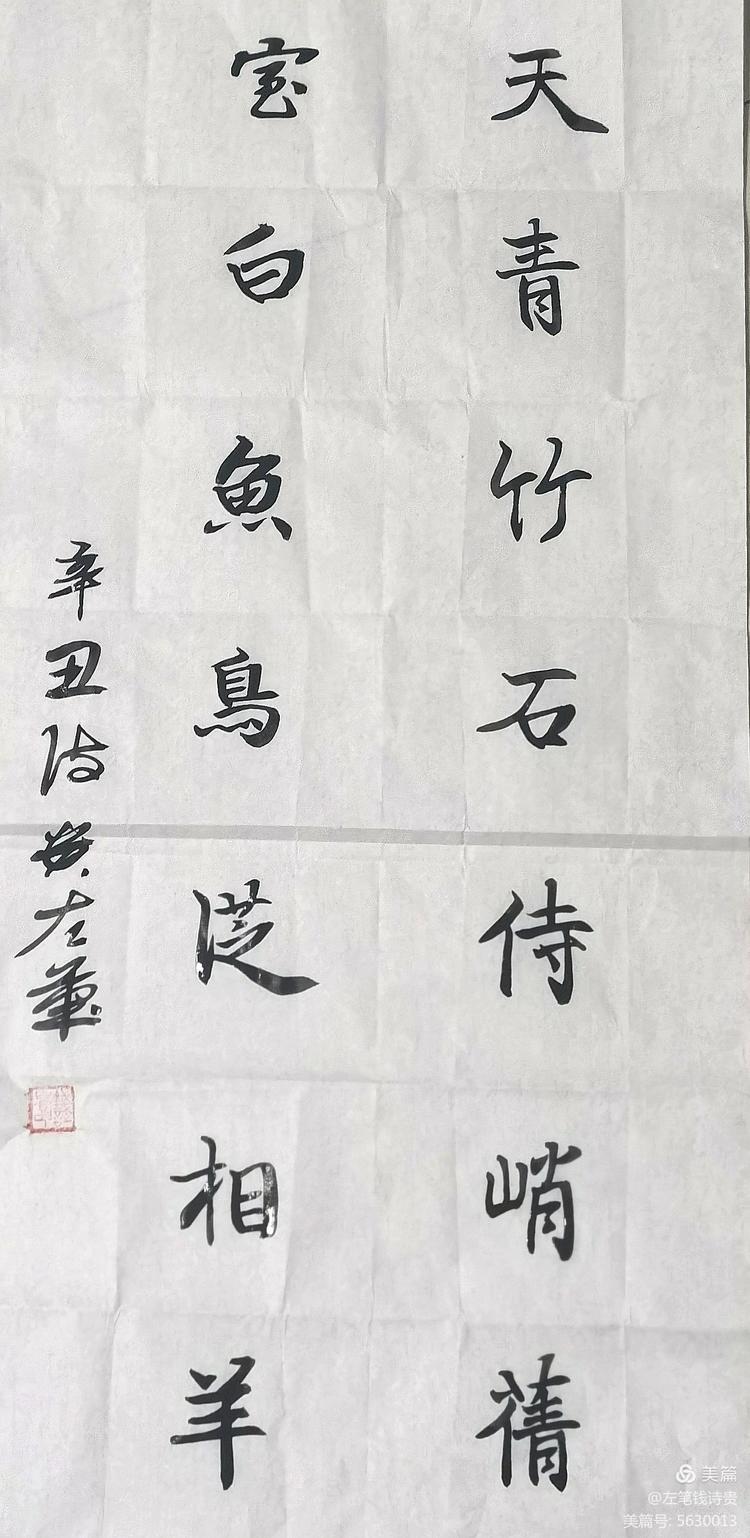 天青竹石侍峭蒨
室白魚鳥從相羊
辛丑诗贵左筆
美篇
@左笔钱诗贵
美篇号: 5630013